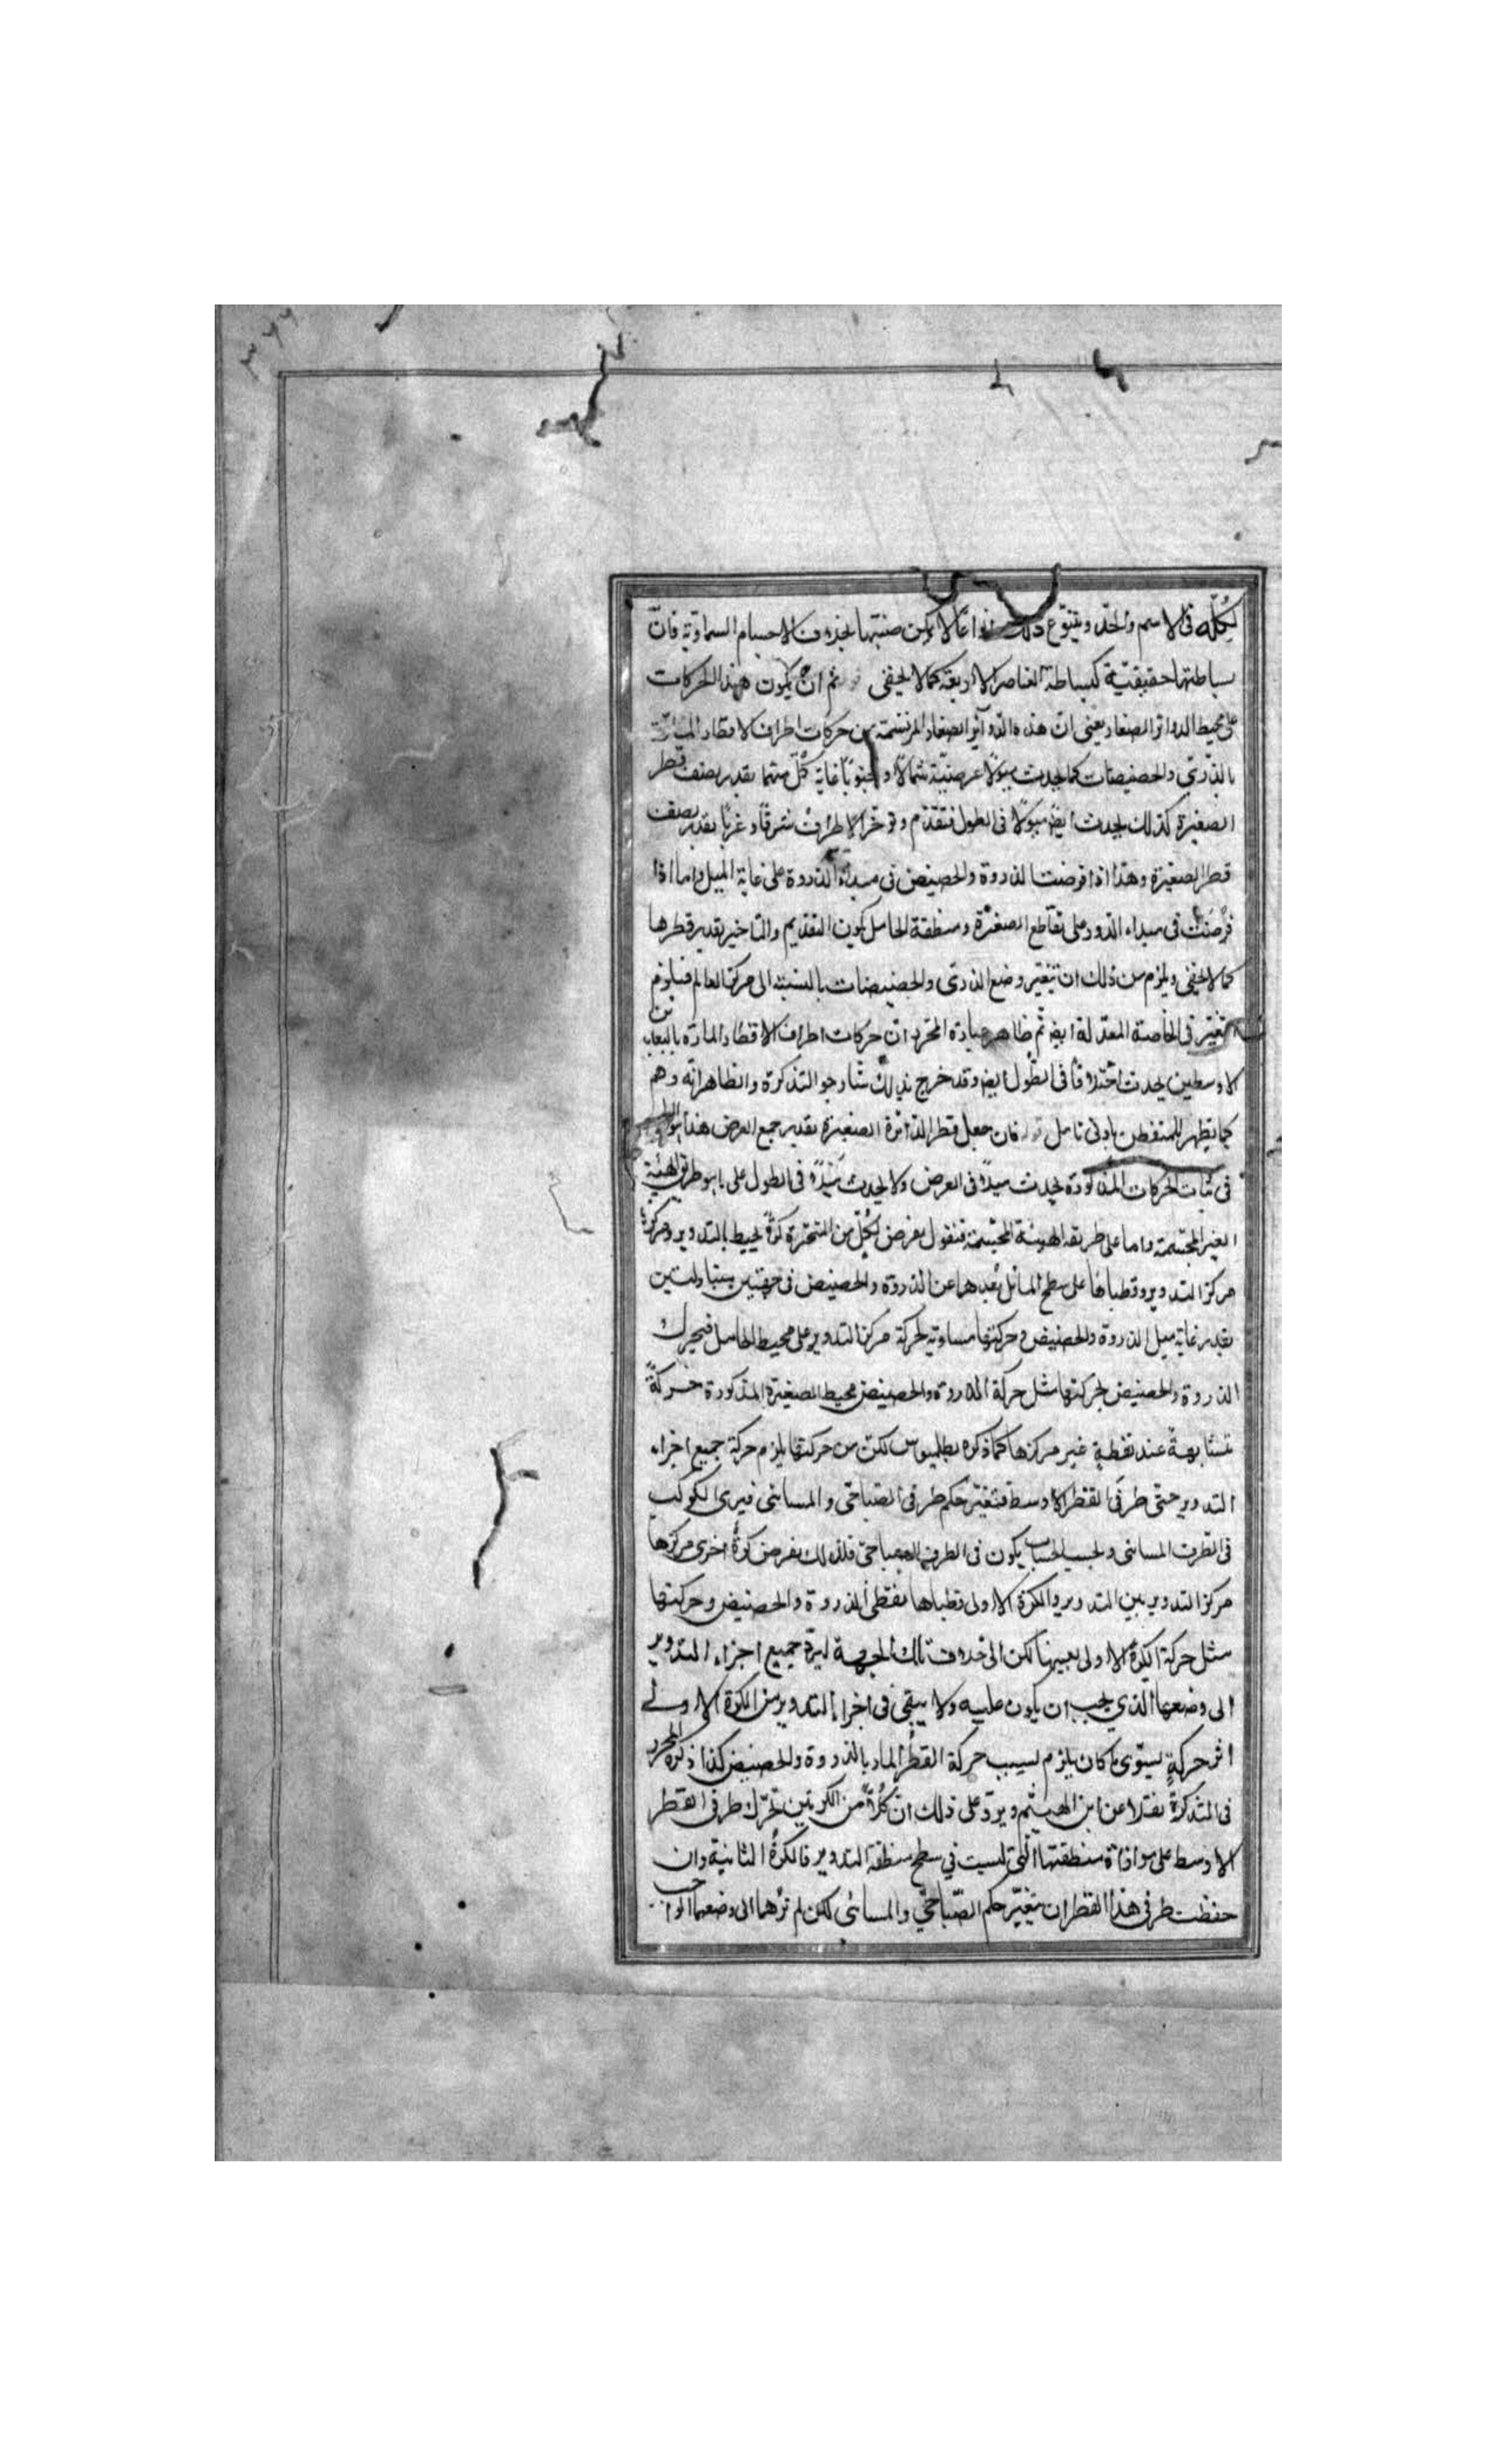 لكلّه فى الاسم والحدّ ويتنوّع ذلك انواعًا لا يمكن ضبتها بخلاف الاجسام السماويّة فانّ
بساطتها حقيقيّة كبساطة العناصر الاربعة كما لا يخفى ثم انّ يكون هذا الحركات
على محيط الدوائر الصغار يعنى انّ هذه الدوآئر الصغار المرتسمة من حركات اطراف الاقطار المارّة
بالذّرى والحضيضات كما يحدث ميولًا عرضيّة شمالًا وجنوبًا غاية كلّ منهما بقدر نصف قطر
الصغيرة كذلك يحدث ايض ميولًا فى الطول فتقدّم وتوخّر الاطراف شرقًا وغربًا بقدر نصف
قطر الصغيرة وهذا اذا فرضت الذروة والحضيض فى مبداء الذروة على غاية الميل واما اذا
فُرضَت فى مبداء الدّور على تقاطع الصغيْرة ومنطقة الحامل يكون التقديم والتاخير بقدر قطرها
كما لا يخفى ويلزم من ذلك ان يتغيّر وضع الذرى والحضيضات بالنسبة الى مركز العالم فيلزم
التغيّر فى الخاصة المعدّلة ايض ثم ظاهر عبارة المحرر انّ حركات اطراف الاقطار المارّة بالبعدين
الاوسطين يحدث اختلافًا فى الطول ايض وقد خرج بذلك شارحو التذكرة والظاهر انّه وهم
كما يظهر للمتفطن بادنى تامل قوله فان جعل قطر الدائرة الصغيرة بقدر جمع العرض هذا
فى ثبات الحركات المذكورة يحدث ميلًا فى العرض ولا يحدث ميلًا فى الطول على ما هو طريق الهيئة
الغير المجسّمة واما على طريقه الهيئة المجسّمة فنقول نفرض لكُلّ من المتحيّرة كرةً يحيط بالتدوير ومركزها
مركز التدوير وقطباها على سطح المائل بُعدهما عن الذروة والحضيض فى جهتين متبادلتين
بقدر غاية ميل الذروة والحضيض وحركتها مساوية لحركة مركز التدوير على محيط الحامل فيحرك
الذروة والحضيض بحركتها مثل حركة الذروة والحضيض محيط الصغيرة المذكورة حركةً
تتشابهةً عند نقطةٍ غير مركزها كما ذكره بطلميوس لكنّ من حركتها يلزم حركة جميع اجزاء
التدوير حتى طرفَى القطر الاوسط فتغيّر حكم طرفى الصّباحّى والمسائى فيرى الكوكب
فى الطرف المسائى وبحسب الحساب يكون فى الطرف الصباحىّ فلذلك نفرض كرةً اخرى مركزها
مركز التدوير بين التدوير والكرة الاولى قطباها نقطتى الذروة والحضيض وحركتها
مثل حركة الكرة الاولى بعينها لكن الى خلاف تلك الجهة ليردّ جميع اجزاء التدوير
الى وضعها الذي يجب ان يكون عليه ولا يبقى فى اجزاء التدوير من الكرة الاولى
اثر حركةٍ سوى ما كان يلزم بسبب حركة القطر المار بالذروة والحضيض كذا ذكره المحرر
فى التذكرة نقلا عن ابن الهيثم ويردّ على ذلك انّ كلًّا من الكرتين تحرّك طرفى القطر
الاوسط على موافاة منطقتها التى ليست في سطح منطقة التدوير فالكرة الثانية وان
حفظت طرفى هذا القطر ان يتغيّر حكم الصّباحىّ والمسائى لكن لم تردّهما الى وضعهما